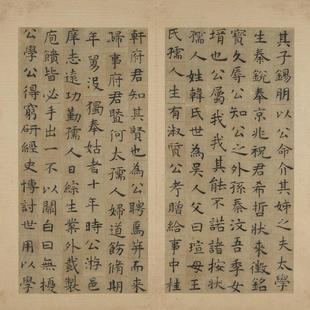 其子錫朋以公命介其姊之夫太學
生秦銳奉京兆祝君希哲狀來徵銘
寶久辱公知公之外孫秦汶吾季女
壻也公屬我我其能不諾諸按狀
孺人姓韓氏世為吳人父曰瑄母王
氏孺人生有淑質公考贈給事中桂
軒府君知其賢也為公聘焉笄而來
歸事府君暨何太孺人婦道飭脩期
年舅沒獨奉姑者十年時公游邑
庠志遠功勤孺人日綜生業外裁製
庖饋皆必手出一不以關白曰無
公學公得窮研經史博討世用以學